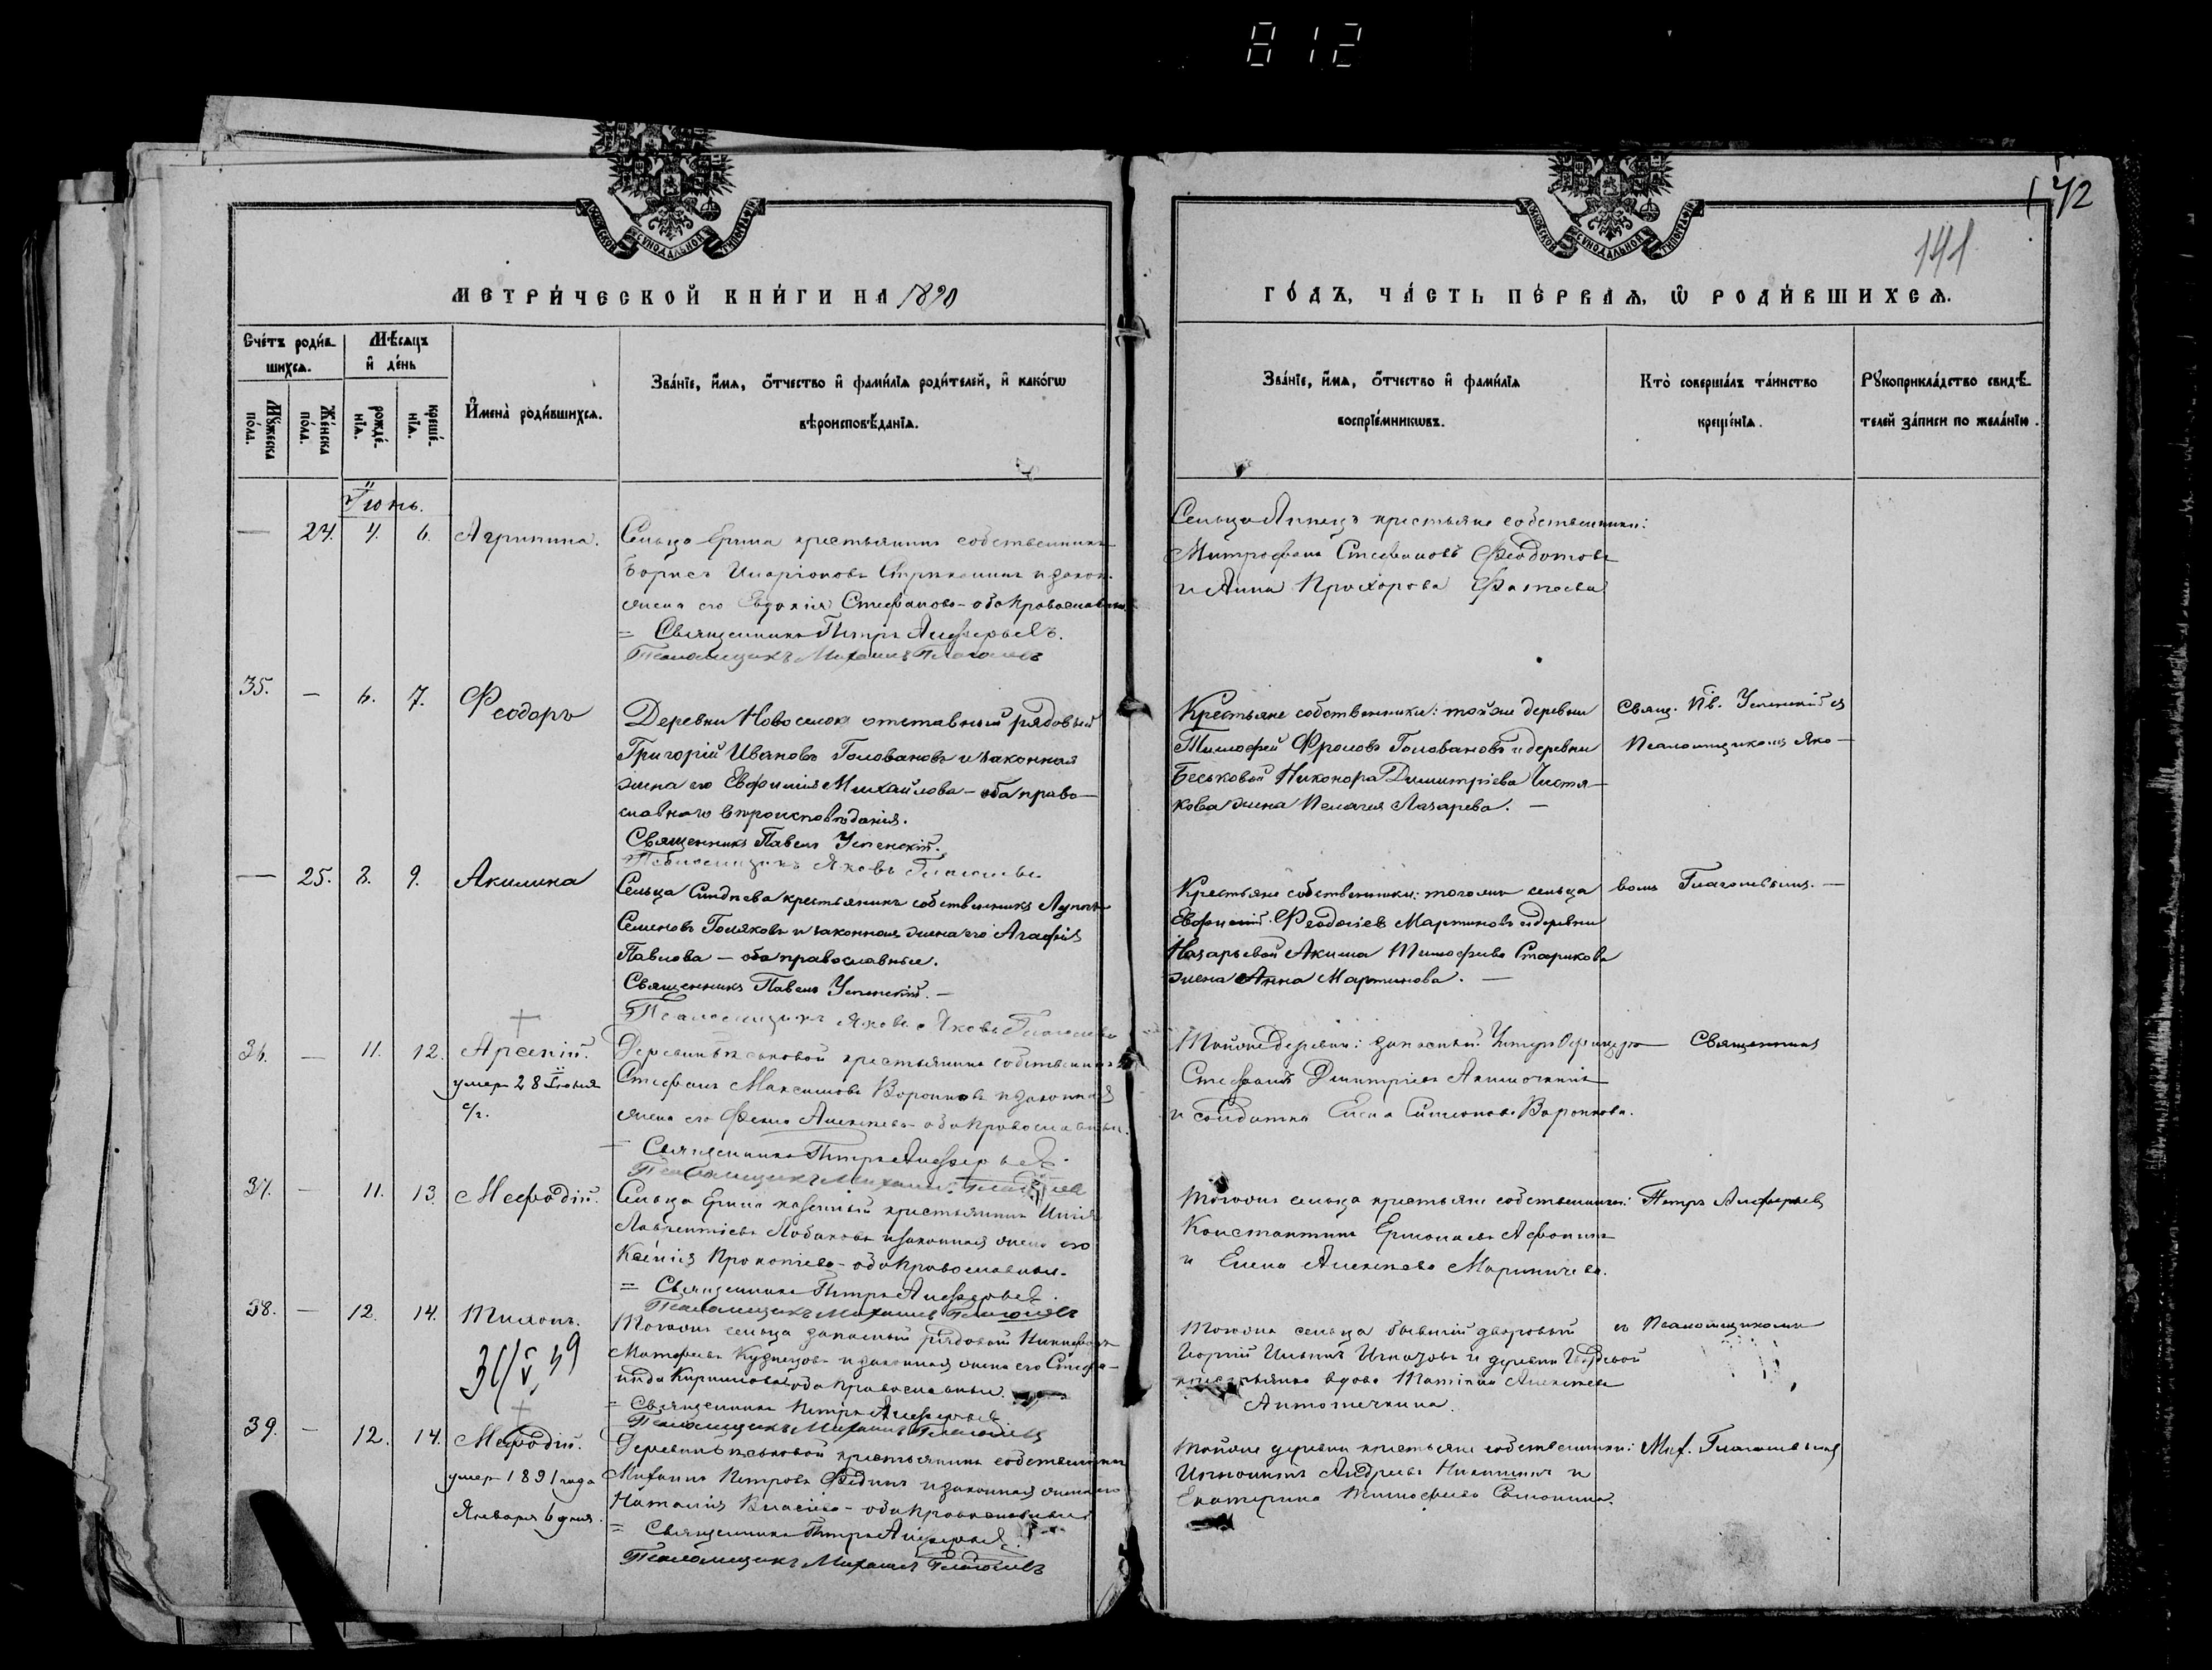 812
142
141
МЕТРИ́ЧЕСКОЙ КНИ́ГИ НА 1890
ГО́ДЪ, ЧА́СТЬ ПЕ́РВАЯ, Ѡ РОДИ́ВШИХСЯ.
Сче́тъ роди́в-
шихся.
Мꙋ́жеска
по́ла.
Же́нска
по́ла.
Мѣ́сяцъ
и҆ де́нь
рожде́-
нїя.
креще́-
нїя.
И҆мена̀ роди́вшихся.
Зва́нїе, и҆́мя, ѻ҆́тчество и҆ фами́лїя роди́телей, и҆ како́гѡ
вѣроисповѣ́данїя.
Зва́нїе, и҆́мя, ѻ҆́тчество и҆ фами́лїя
воспрїе́мниковъ.
Кто̀ соверша́лъ та́инство
креще́нїя.
Рꙋкоприкла́дство свидѣ́-
телей за́писи по жела́нїю.
Іюнь.
— 24. 4. 6. Агрипина.
Сельца Ерина крестьянинъ собственникъ
Борисъ
жена его Евдокія Стефанова - оба православные.
= Священникъ Петръ Алферьевъ.
Псаломщикъ Михаилъ Глаголевъ
Сельца крестьяне собственники:
Митрофанъ Стефановъ Феодотовъ
и Анна Прохорова
35. — 6. 7. Феодоръ
Деревни Новоселок отставный рядовый
Григорій Ивановъ Головановъ и законная
жена его Евфимія Михайлова - оба право-
славнаго вѣроисповѣданія.
Священникъ Павелъ Успенскій.
Псаломщикъ Яковъ Глаголевъ
Крестьяне собственники: той же деревни
Тимофей Фроловъ Головановъ и деревни
Беськовой Никонора Димитріева Чистя-
кова жена Пелагея Лазарева. —
Свящ. Пв. Успенскій съ
Псаломщикомъ Яко-
— 25. 8. 9. Акилина
Сельца Сикнѣева крестьянинъ собственникъ
Семеновъ Голяковъ и законная жена его Агафія
Павлова — оба православные.
Священникъ Павелъ Успенскій. —
Псаломщикъ Яковъ Глаголевъ
Крестьяне собственники: того же сельца
Евфимій Феодосіевъ Мартиновъ и деревни
Назарьевой Акима Тимофеева Старикова
жена Анна Мартинова. —
вомъ Глаголевымъ. —
36. — 11. 12. Арсеній.
умеръ 28 Іюня
с/г.
Деревни Беськовой крестьянинъ собственникъ
Стефанъ Максимовъ Воронковъ и законная
жена его Фекла Алексѣева - оба православные.
= Священникъ Петръ Алферьевъ.
Псаломщикъ Михаилъ Глаголевъ
Той же деревни: запасный Унтеръ Офицеръ
Стефанъ Димитріевъ
и солдатка Елена Симеонова Воронкова.
Священникъ
37. — 11. 13. Мефодій.
Сельца Ерина крестьянинъ Илія
Лаврентіевъ Лобановъ и законная жена его
Ксенія Прокопіева - оба православные.
= Священникъ Петръ Алферьевъ.
Псаломщикъ Михаилъ Глаголевъ
Того же сельца крестьяне собственники:
Константинъ Ермолаевъ Афонинъ
и Елена Алексѣева
Петръ Алферьевъ
38. — 12. 14. Тихонъ.
Того же сельца запасный рядовой Никифоръ
Матфеевъ Кузнецовъ и законная жена его Стефа-
нида Кириллова - оба православные.
= Священникъ Петръ Алферьевъ.
Псаломщикъ Михаилъ Глаголевъ
Того же сельца бывшій дворовый
Георгій Ильинъ и деревни
крестьянка вдова Алексѣева
Антошечкина.
съ Псаломщикомъ
39. — 12. 14. Мефодій.
умеръ 1891 года
Января 6 дня.
Деревни Беськовой крестьянинъ собственникъ
Михаилъ Петровъ Фединъ и законная жена его
Наталія Власіева - оба православные
= Священникъ Петръ Алферьевъ.
Псаломщикъ Михаилъ Глаголевъ
Той же деревни крестьяне собственники:
Андреевъ Никишинъ и
Екатерина Тимофеева
Мих. Глаголевымъ